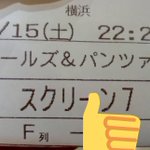 横浜
/15(土) 22:2
ールズ&パンツァ
スクリーン7
F列 ー